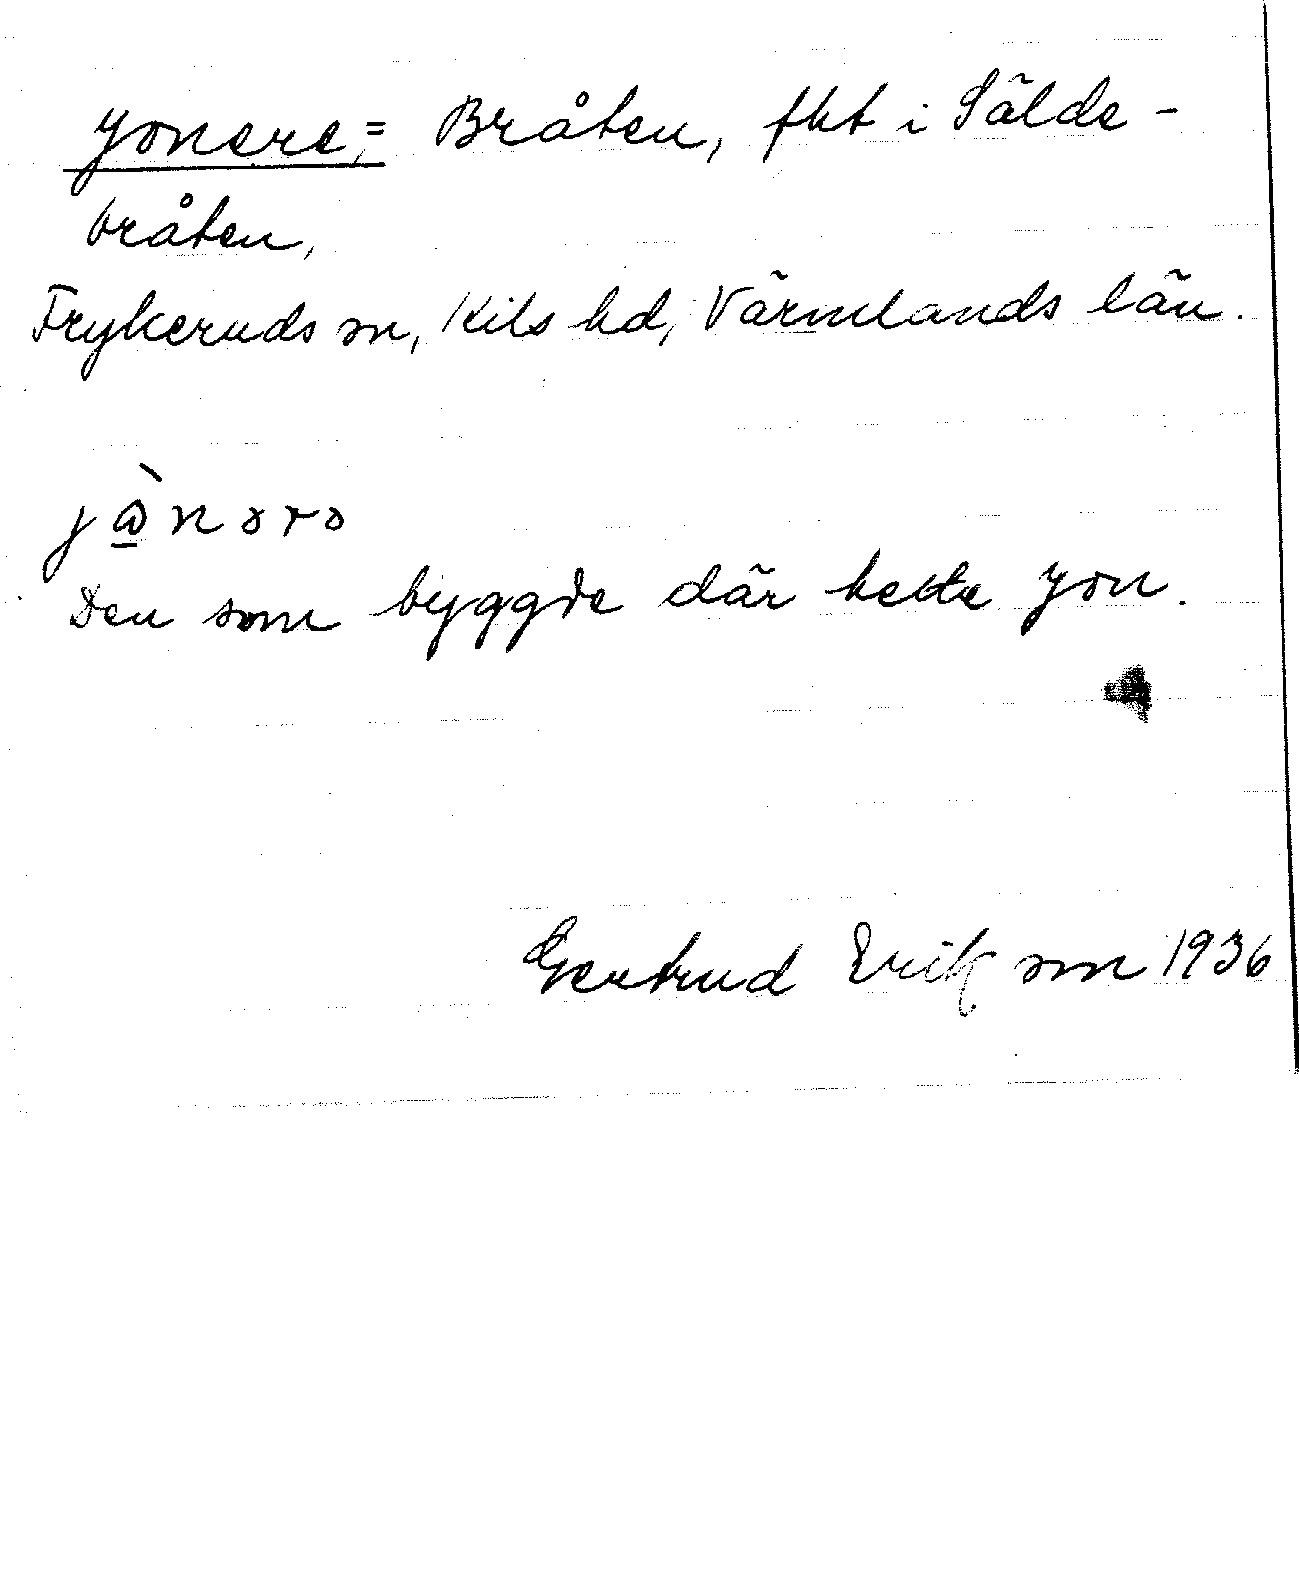 Jonere,= Bråten, fht i Sälde-
bråten,
Frykeruds sn, Kils hd, Värmlands län.
jὼnərə
Den som byggde där hette Jon.
Gertrud Erikson 1936